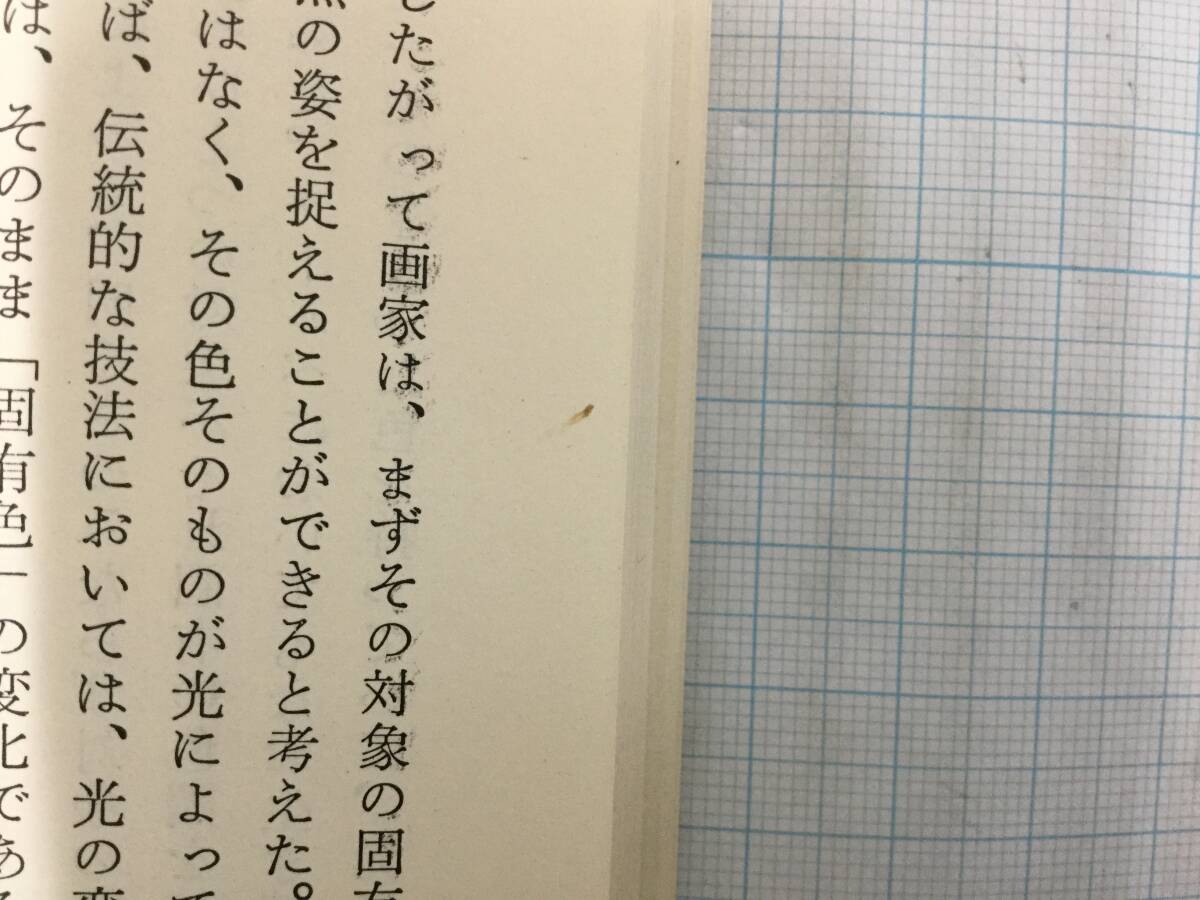 したがって画家は、まずその対象の固有
の姿を捉えることができると考えた。
はなく、その色そのものが光によって
ば、伝統的な技法においては、光の変
は、そのまま「固有色」の変化である